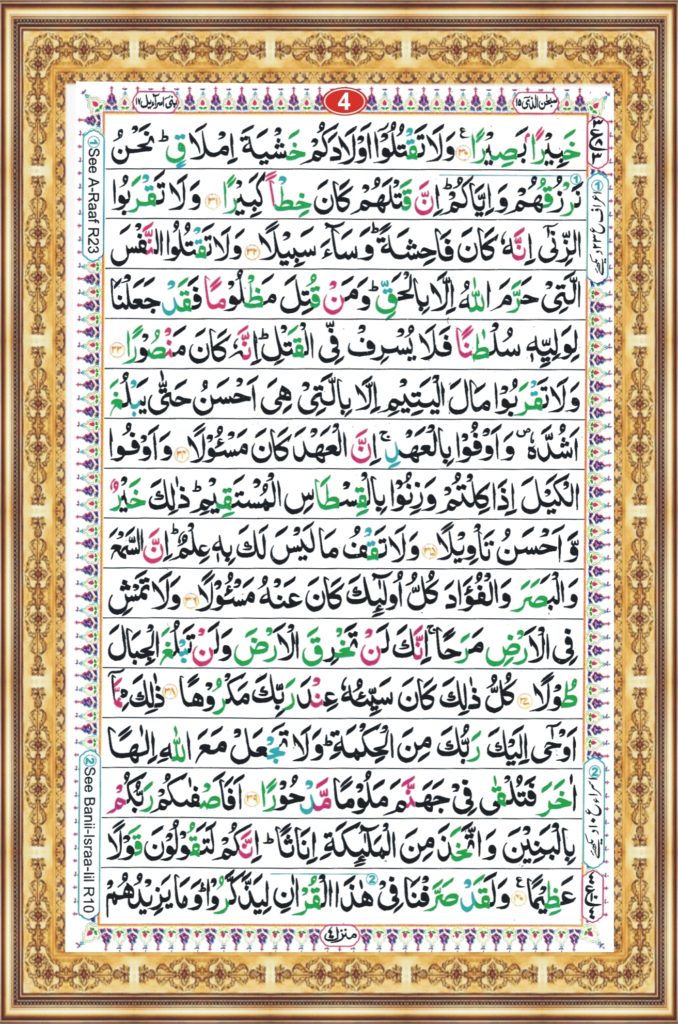 سبحٰن الذی ۱۵
4
بنی اسرآءیل ۱۷
خَبِیْرًۢا بَصِیْرًا ﴿۳۰﴾ وَلَا تَقْتُلُوْۤا اَوْلَادَكُمْ خَشْیَةَ اِمْلَاقٍ ؕ نَحْنُ
نَرْزُقُهُمْ وَاِیَّاكُمْ ؕ اِنَّ قَتْلَهُمْ كَانَ خِطْاً كَبِیْرًا ﴿۳۱﴾ وَلَا تَقْرَبُوا
الزِّنٰۤی اِنَّهٗ كَانَ فَاحِشَةً ؕ وَسَآءَ سَبِیْلًا ﴿۳۲﴾ وَلَا تَقْتُلُوا النَّفْسَ
الَّتِیْ حَرَّمَ اللّٰهُ اِلَّا بِالْحَقِّ ؕ وَمَنْ قُتِلَ مَظْلُوْمًا فَقَدْ جَعَلْنَا
لِوَلِیِّهٖ سُلْطٰنًا فَلَا یُسْرِفْ فِّی الْقَتْلِ ؕ اِنَّهٗ كَانَ مَنْصُوْرًا ﴿۳۳﴾
وَلَا تَقْرَبُوْا مَالَ الْیَتِیْمِ اِلَّا بِالَّتِیْ هِیَ اَحْسَنُ حَتّٰی یَبْلُغَ
اَشُدَّهٗ ۪ وَاَوْفُوْا بِالْعَهْدِ ۚ اِنَّ الْعَهْدَ كَانَ مَسْـُٔوْلًا ﴿۳۴﴾ وَاَوْفُوا
الْكَیْلَ اِذَا كِلْتُمْ وَزِنُوْا بِالْقِسْطَاسِ الْمُسْتَقِیْمِ ؕ ذٰلِكَ خَیْرٌ
وَّاَحْسَنُ تَاْوِیْلًا ﴿۳۵﴾ وَلَا تَقْفُ مَا لَیْسَ لَكَ بِهٖ عِلْمٌ ؕ اِنَّ السَّمْعَ
وَالْبَصَرَ وَالْفُؤَادَ كُلُّ اُولٰٓئِكَ كَانَ عَنْهُ مَسْـُٔوْلًا ﴿۳۶﴾ وَلَا تَمْشِ
فِی الْاَرْضِ مَرَحًا ۚ اِنَّكَ لَنْ تَخْرِقَ الْاَرْضَ وَلَنْ تَبْلُغَ الْجِبَالَ
طُوْلًا ﴿۳۷﴾ كُلُّ ذٰلِكَ كَانَ سَیِّئُهٗ عِنْدَ رَبِّكَ مَكْرُوْهًا ﴿۳۸﴾ ذٰلِكَ مِمَّاۤ
اَوْحٰۤی اِلَیْكَ رَبُّكَ مِنَ الْحِكْمَةِ ؕ وَلَا تَجْعَلْ مَعَ اللّٰهِ اِلٰهًا
اٰخَرَ فَتُلْقٰی فِیْ جَهَنَّمَ مَلُوْمًا مَّدْحُوْرًا ﴿۳۹﴾ اَفَاَصْفٰىكُمْ رَبُّكُمْ
بِالْبَنِیْنَ وَاتَّخَذَ مِنَ الْمَلٰٓئِكَةِ اِنَاثًا ؕ اِنَّكُمْ لَتَقُوْلُوْنَ قَوْلًا
عَظِیْمًا ﴿۴۰﴾ وَلَقَدْ صَرَّفْنَا فِیْ هٰذَا الْقُرْاٰنِ لِیَذَّكَّرُوْا ؕ وَمَا یَزِیْدُهُمْ
منزل ۴
1 See A-Raaf R23
2 See Banii-Israa-Iil R10